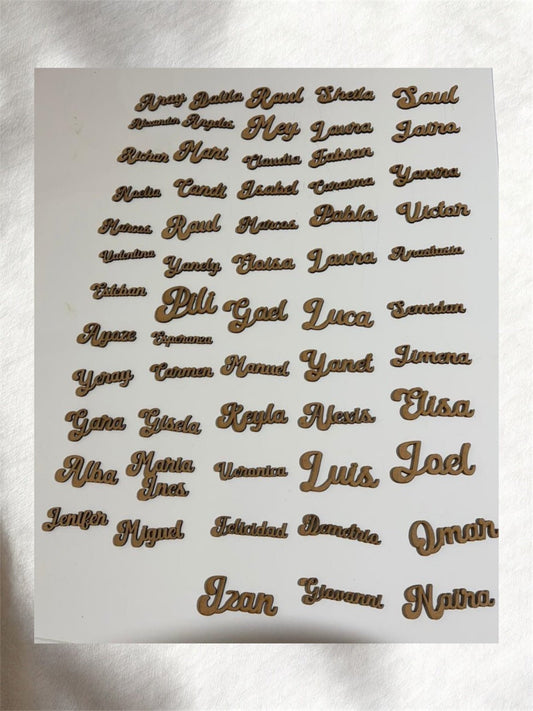 Aray Dalila Raul Sheila Saul
Alexander Angeles Mey Laura Jairo
Richar Mari Claudia Fabian
Noelia Candi Isabel Caraima Yanira
Marcos Raul Marcos Pablo Victor
Valentina Yanely Eloisa Laura
Esteban Pili Gael Luca Semidan
Ayoze Esperanza
Yeray Carmen Manuel Yanet Jimena
Gara Gisela Keyla Alexis Elisa
Alba Maria Ines Veronica Luis Joel
Jenifer Miguel Felicidad Demetrio Omar
Izan Giovanni Naira